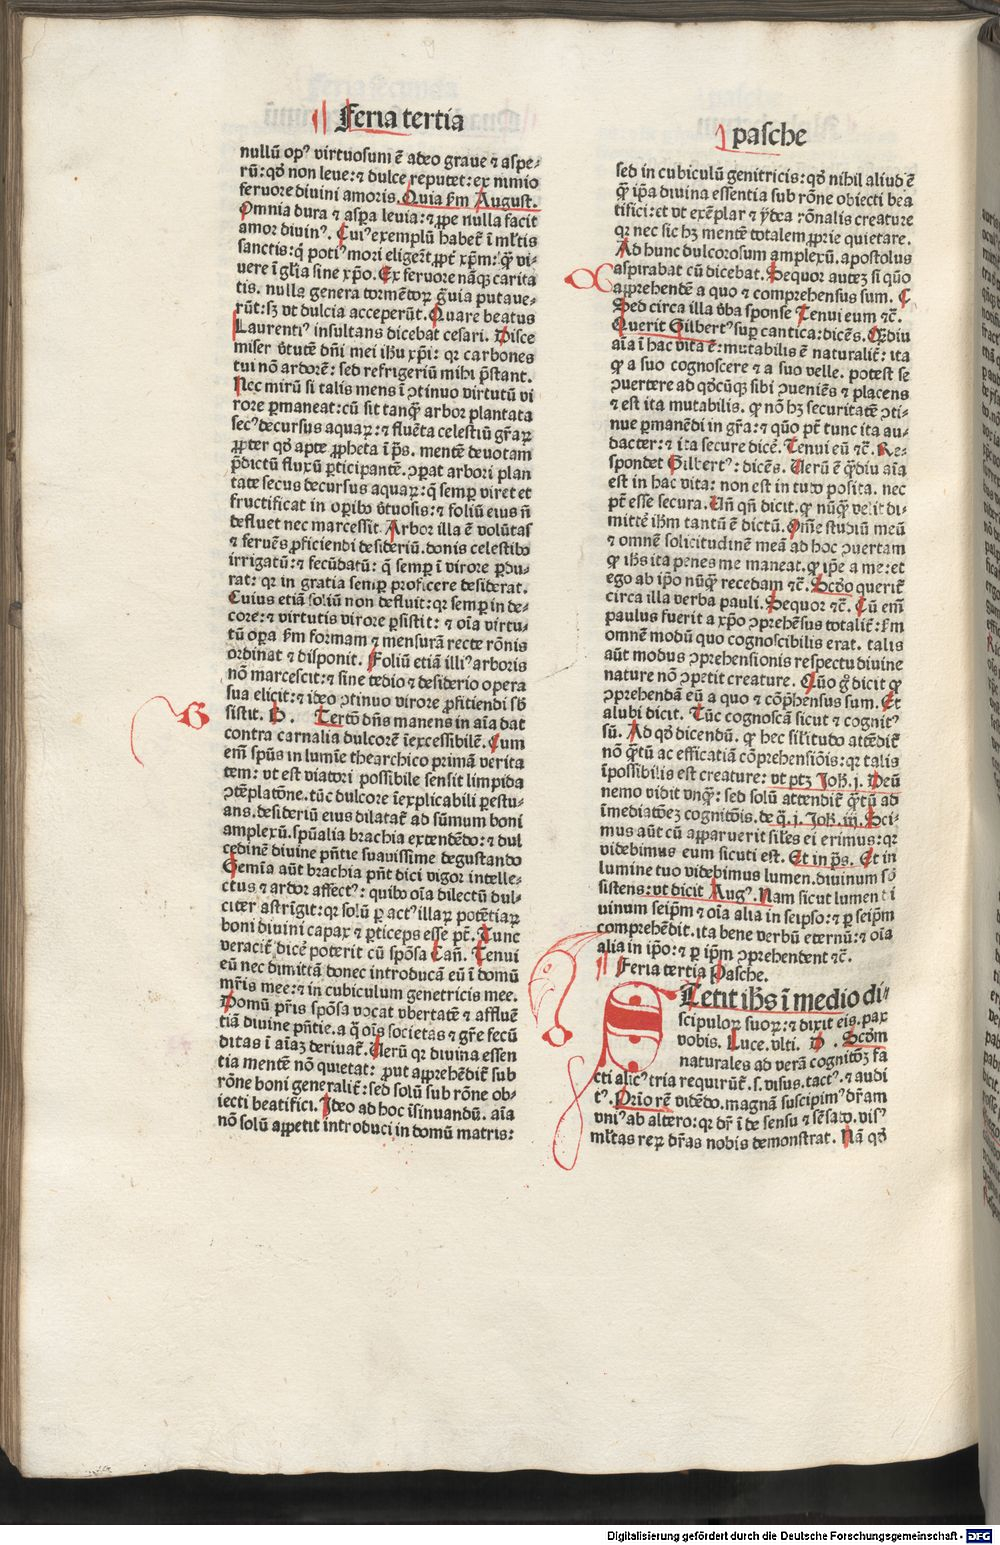 Feria tertia
nullū opꝰ virtuosum ē adeo graue ⁊ aspe⸗
rū: qđ non leue: ⁊ dulce reputet: ex nimio
feruore diuini amoris. Quia ẜm August.
Omnia dura ⁊ aspa leuia: ⁊ ꝓpe nulla facit
amor diuinꝰ. Cuiꝰ exemplū habet ī ml̄tis
sanctis: q̄ potiꝰ mori eliger̄t ꝓpt̄ xp̄m: q̄ vi⸗
uere ī gl̄ia sine xp̄o. Ex feruore nāqꝫ carita
tis. nulla genera tormētoꝝ grauia putaue⸗
rūt: sꝫ vt dulcia acceperūt. Quare beatus
Laurentiꝰ insultans dicebat cesari. Disce
miser v̄tutē dn̄i mei ih̄u xp̄i: qꝛ carbones
tui nō ardorē: sed refrigeriū mihi p̄stant.
Nec mirū si talis mens ī ꝯtinuo virtutū vi
rore ꝑmaneat: cū sit tanq̄ arbor plantata
secꝰ decursus aquaꝝ: ⁊ fluēta celestiū gr̄aꝝ
ꝓpter qđ apte ꝓpheta ī p̄s. mentē deuotam
p̄dictū fluxū ꝑticipantē. ꝯꝑat arbori plan
tate secus decursus aquaꝝ: q̄ semꝑ viret et
fructificat in oꝑibꝰ v̄tuosis: ⁊ foliū eius n̄
defluet nec marcessit. Arbor illa ē volūtas
⁊ feruēs ꝓficiendi desideriū. donis celestibꝰ
irrigatū: ⁊ fecūdatū: q̄ semꝑ ī virore ꝑdu⸗
rat: qꝛ in gratia semꝑ proficere desiderat.
Cuius etiā foliū non defluit: qꝛ semꝑ in de⸗
core: ⁊ virtutis virore ꝑsistit: ⁊ oīa virtu⸗
tū oꝑa ẜm formam ⁊ mensurā recte rōnis
ordinat ⁊ disponit. Foliū etiā illiꝰ arboris
nō marcescit: ⁊ sine tedio ⁊ desiderio opera
sua elicit: ⁊ ideo ꝯtinuo virore ꝓfitiendi sb̄
sistit. B. Tertō dn̄s manens in aīa dat
B
contra carnalia dulcorē īexcessibilē. Cum
em̄ spūs in lumīe thearchico primā verita
tem: vt est viatori possibile sensit limpida
ꝯtēplatōne. tūc dulcore īexplicabili ꝑestu⸗
ans. desideriū eius dilatat̄ ad sūmum boni
amplexū. spūalia brachia extendēdo: ⁊ dul
cedinē diuine pn̄tie suauissime degustando
Gemīa aūt brachia pn̄t dici vigor intelle⸗
ctus ⁊ ardor affectꝰ: quibꝰ oīa dilectū dul⸗
citer astrīgit: qꝛ solū ꝑ actꝰ illaꝝ potētiaꝝ
boni diuini capax ⁊ ꝑticeps esse pt̄. Tunc
veracit̄ dicē poterit cū spōsa Cañ. Tenui
eū nec dimittā donec introducā eū ī domū
mr̄is mee: ⁊ in cubiculum genetricis mee.
Domū pr̄is spōsa vocat vbertatē ⁊ affluē
tiā diuine pn̄tie. a q̄ oīs societas ⁊ gr̄e fecū
ditas ī aīaꝫ deriuat̄. Uerū qꝛ diuina essen
tia mentē nō quietat: prout apprehēdit̄ sub
rōne boni generalit̄: sed solū sub rōne ob⸗
iecti beatifici. Ideo ad hoc īsinuandū. aīa
nō solū appetit introduci in domū matris:
pasche
sed in cubiculū genitricis: qđ nihil aliud ē
q̄ ip̄a diuina essentia sub rōne obiecti bea
tifici: et vt exēplar ⁊ ydea rōnalis creature
qꝛ nec sic hꝫ mentē totalem ꝓprie quietare.
Ad hunc dulcorosum amplexū. apostolus
aspirabat cū dicebat. Sequor auteꝫ si quo
apprehendē a quo ⁊ comprehensus sum. C
Sed circa illa v̄ba sponse Tenui eum ⁊c̄.
Querit Gilbertꝰ suꝑ cantica: dicēs. Qͣdiu
aīa ī hac vita ē: mutabilis ē naturalit̄: ita
ꝙ a suo cognoscere ⁊ a suo velle. potest se
ꝯuertere ad qđcūqꝫ sibi ꝯueniēs ⁊ placens
⁊ est ita mutabilis. ꝙ nō hꝫ securitatē ꝯti⸗
nue ꝑmanēdi in gr̄a: ⁊ quō pt̄ tunc ita au⸗
dacter: ⁊ ita secure dicē. Tenui eū ⁊c̄. Re⸗
spondet Gilbertꝰ: dicēs. Uerū ē q̄diu aīa
est in hac vita: non est in tuto posita. nec
pt̄ esse secura. Un̄ qn̄ dicit. ꝙ nūqͣ velit di⸗
mittē ih̄m tantū ē dictū. Om̄e studiū meū
⁊ omnē solicitudinē meā ad hoc ꝯuertam
ꝙ ih̄s ita penes me maneat. ꝙ ip̄e a me: et
ego ab ip̄o nūqͣ recedam ⁊c̄. Scd̄o querit̄
circa illa verba pauli. Sequor ⁊c̄. Cū em̄
paulus fuerit a xp̄o ꝯprehēsus totalit̄: ẜm
omnē modū quo cognoscibilis erat. talis
aūt modus ꝯprehensionis respectu diuine
nature nō ꝯpetit creature. Quō g̊ dicit ꝙ
ꝯprehendā eū a quo ⁊ cōp̄hēsus sum. Et
alubi dicit. Tūc cognoscā sicut ⁊ cognitꝰ
sū. Ad qđ dicendū. ꝙ hec sil̄itudo attēdit̄
nō q̄tū ac efficatiā cōprehensiōis: qꝛ talis
īpossibilis est creature: vt ptꝫ Joh̄. j. Deū
nemo vidit vnqͣ: sed solū attendit̄ q̄tū ad
īmediatōeꝫ cognitōis. de q̄. j. Joh̄. iij. Sci⸗
mus aūt cū apparuerit sil̄es ei erimus: qꝛ
videbimus eum sicuti est. Et in p̄s. Et in
lumine tuo videbimus lumen. diuinum
sistens: vt dicit Augꝰ. Nam sicut lumen
uinum seip̄m ⁊ oīa alia in seipso: ⁊ ꝑ seip̄m
comprehēdit. ita bene verbū eternū: ⁊ oīa
alia in ip̄o: ⁊ ꝑ ip̄m ꝯprehendent ⁊c̄.
Feria tertia Pasche.
Stetit ih̄s ī medio di⸗
scipuloꝝ suoꝝ: ⁊ dixit eis. pax
vobis. Luce. vlti. D. Scd̄m
naturales ad verā cognitōꝫ fa
cti alicꝰ tria requirūt̄. s. visus. tactꝰ. ⁊ audi
tꝰ. Prio rē vidēdo. magnā suscipimꝰ dr̄am
vniꝰ ab altero: qꝛ dr̄ ī de sensu ⁊ sēsato. visꝰ
ml̄tas reꝝ dr̄as nobis demonstrat. Nā qđ
Digitalisierung gefördert durch die Deutsche Forschungsgemeinschaft - DFG